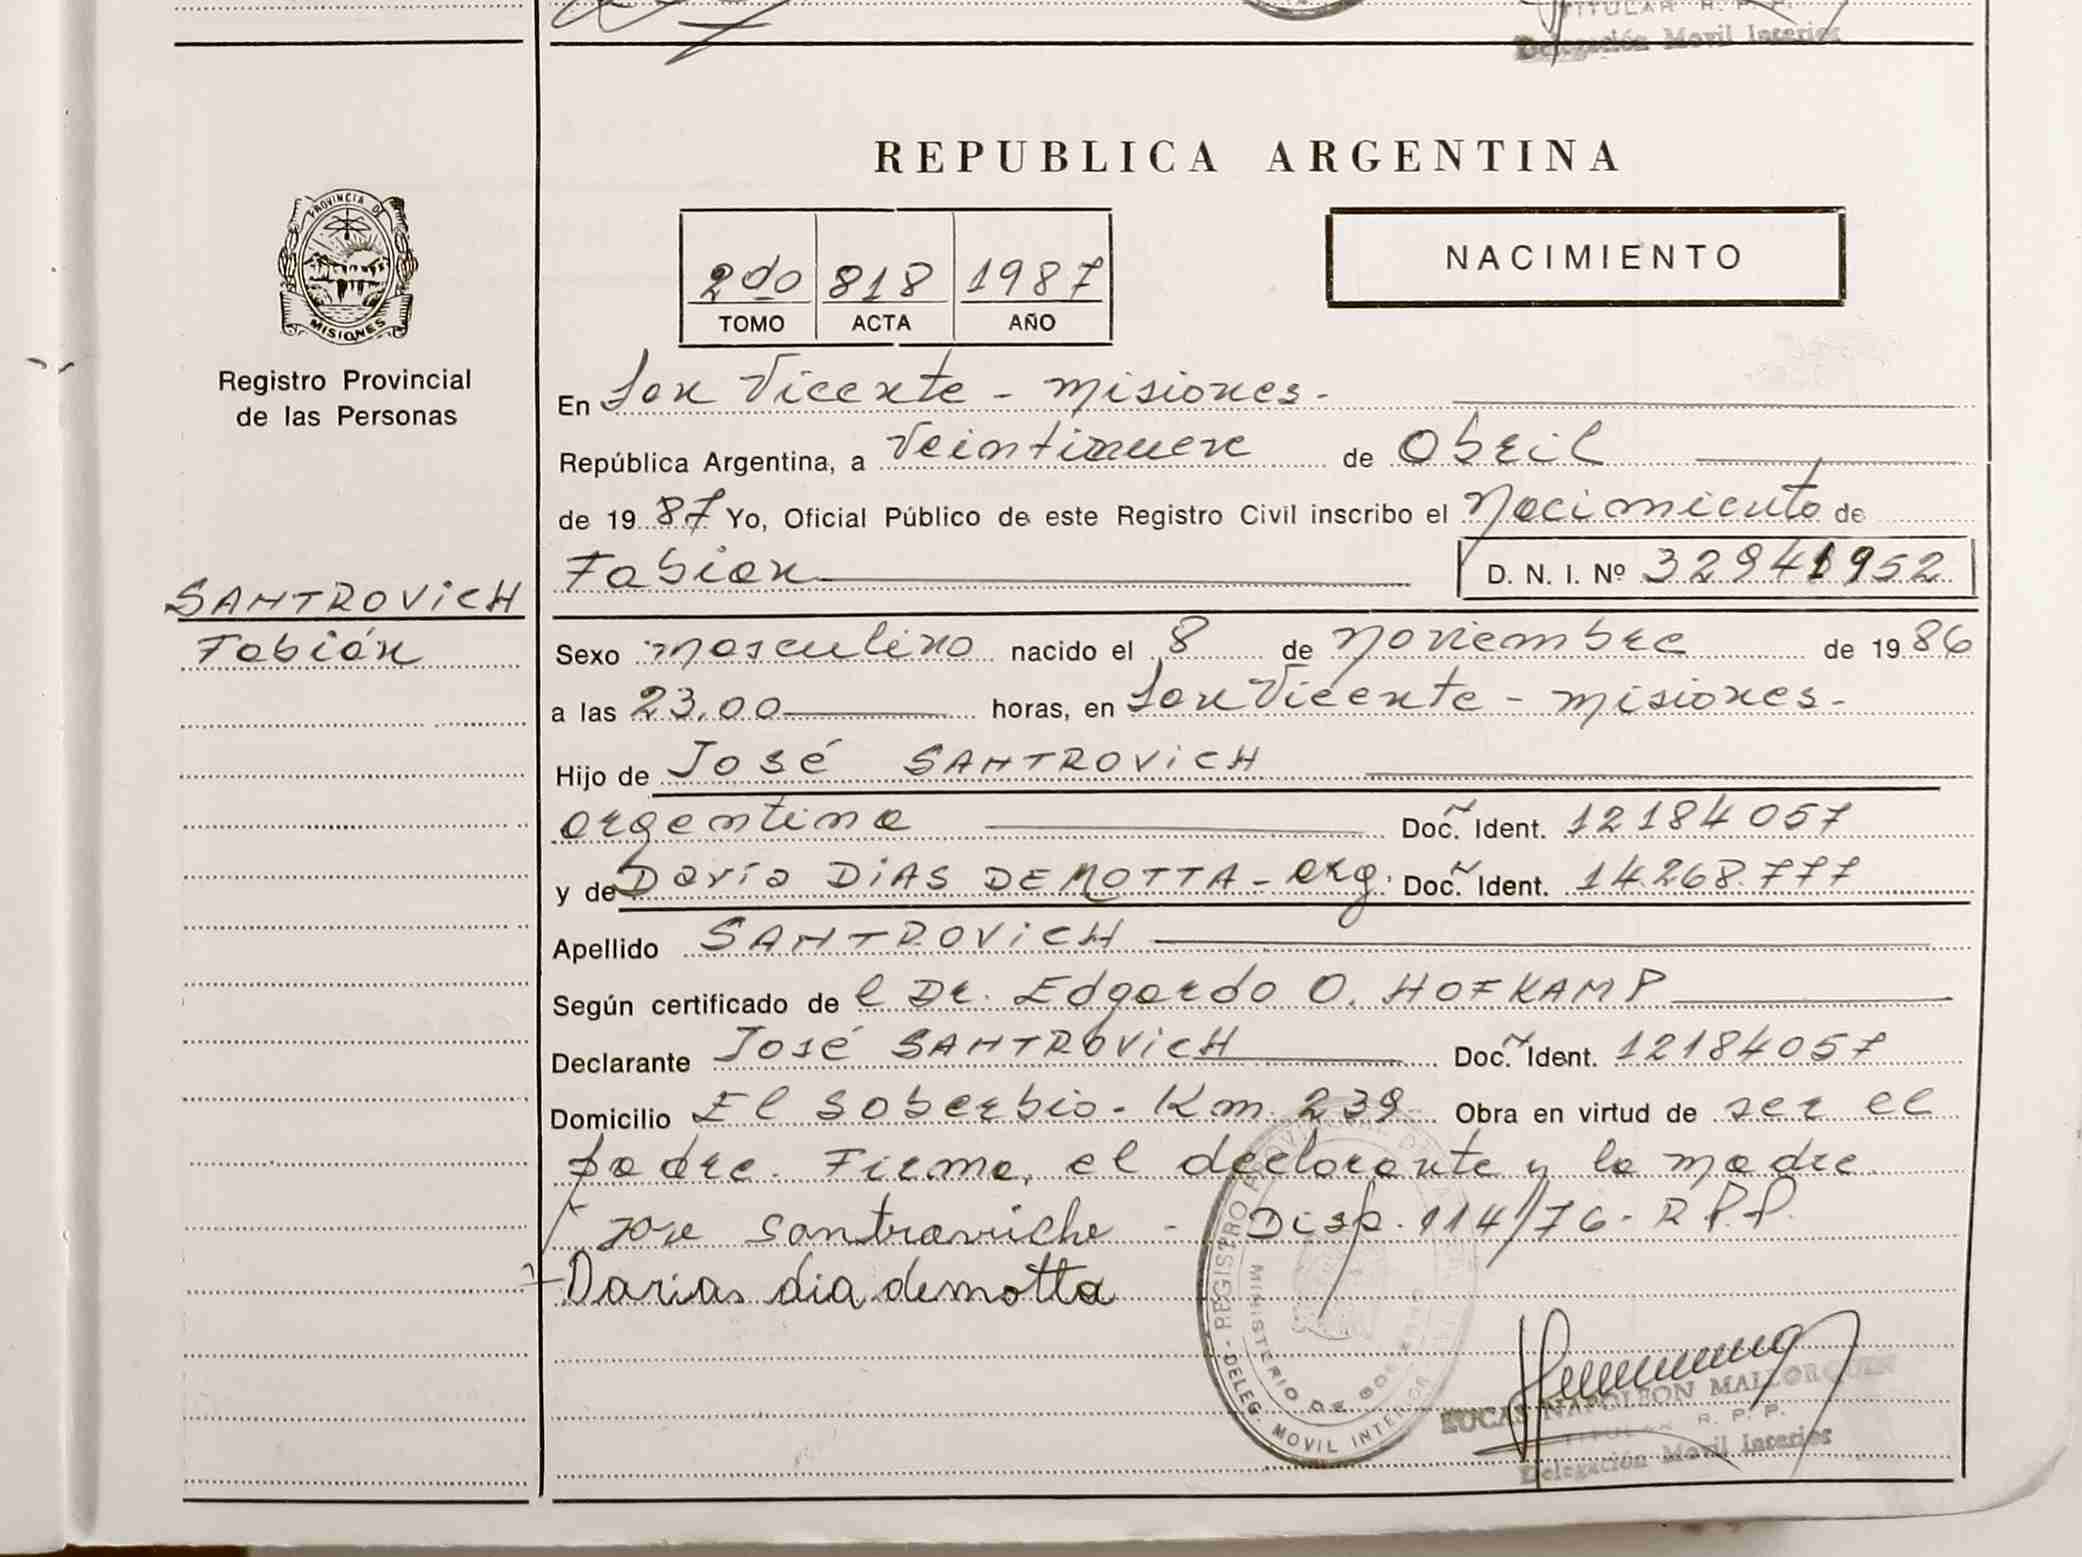 TITULAR R. P. P.
Delegación Movil Interior
REPUBLICA ARGENTINA
PROVINCIA DE
MISIONES
Registro Provincial
de las Personas
2do 818 1987
TOMO ACTA AÑO
NACIMIENTO
En San Vicente - Misiones.-
República Argentina, a veintinueve de Abril
de 1987 Yo, Oficial Público de este Registro Civil inscribo el Nacimiento de
Fabian D. N. I. Nº 32941952
SANTROVICH
Fabián
Sexo masculino nacido el 8 de Noviembre de 1986
a las 23.00 horas, en San Vicente - Misiones.-
Hijo de José SANTROVICH
argentino Doc. Ident. 12184057
y de Daría DIAS DEMOTTA - arg. Doc. Ident. 14.268.777
Apellido SANTROVICH
Según certificado de l Dr. Edgardo O. HOFKAMP
Declarante José SANTROVICH Doc. Ident. 12184057
Domicilio El Soberbio - Km. 239 Obra en virtud de ser el
padre. Firma, el declarante y la madre
Jose Santroviche - Disp. 114/76 - R.P.P.
Darias dia demotta
REGISTRO PROVINCIAL DE LAS
MINISTERIO DE GOBIERNO
DELEG. MOVIL INTERIOR
LUCAS NAPOLEON MALLORQUIN
TITULAR R. P. P.
Delegación Movil Interior